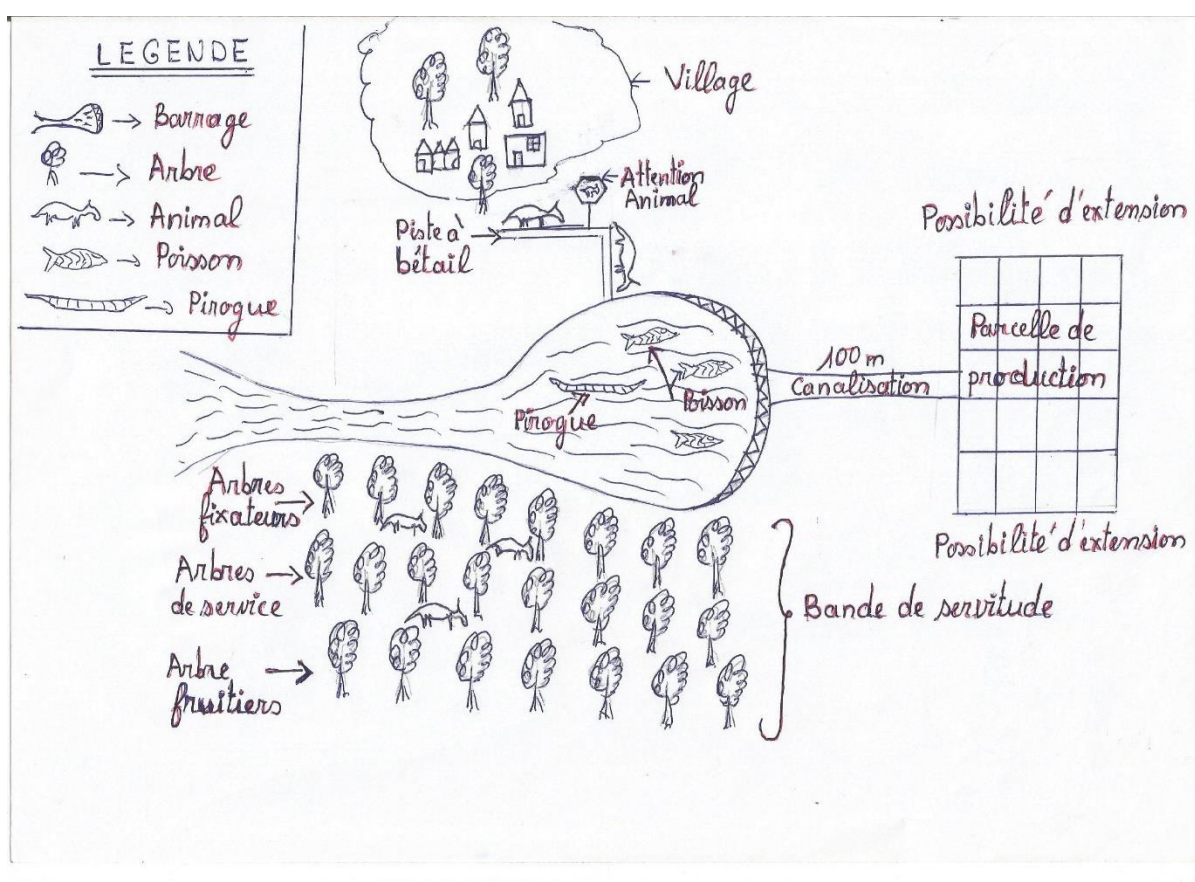 LEGENDE
→ Barrage
→ Arbre
→ Animal
→ Poisson
→ Pirogue
← Village
← Attention
Animal
Piste à →
bétail
Possibilité d'extension
Parcelle de
production
100 m
Canalisation
Poisson
Pirogue
Possibilité d'extension
Arbres →
fixateurs
Arbres →
de service
Arbre →
fruitiers
Bande de servitude